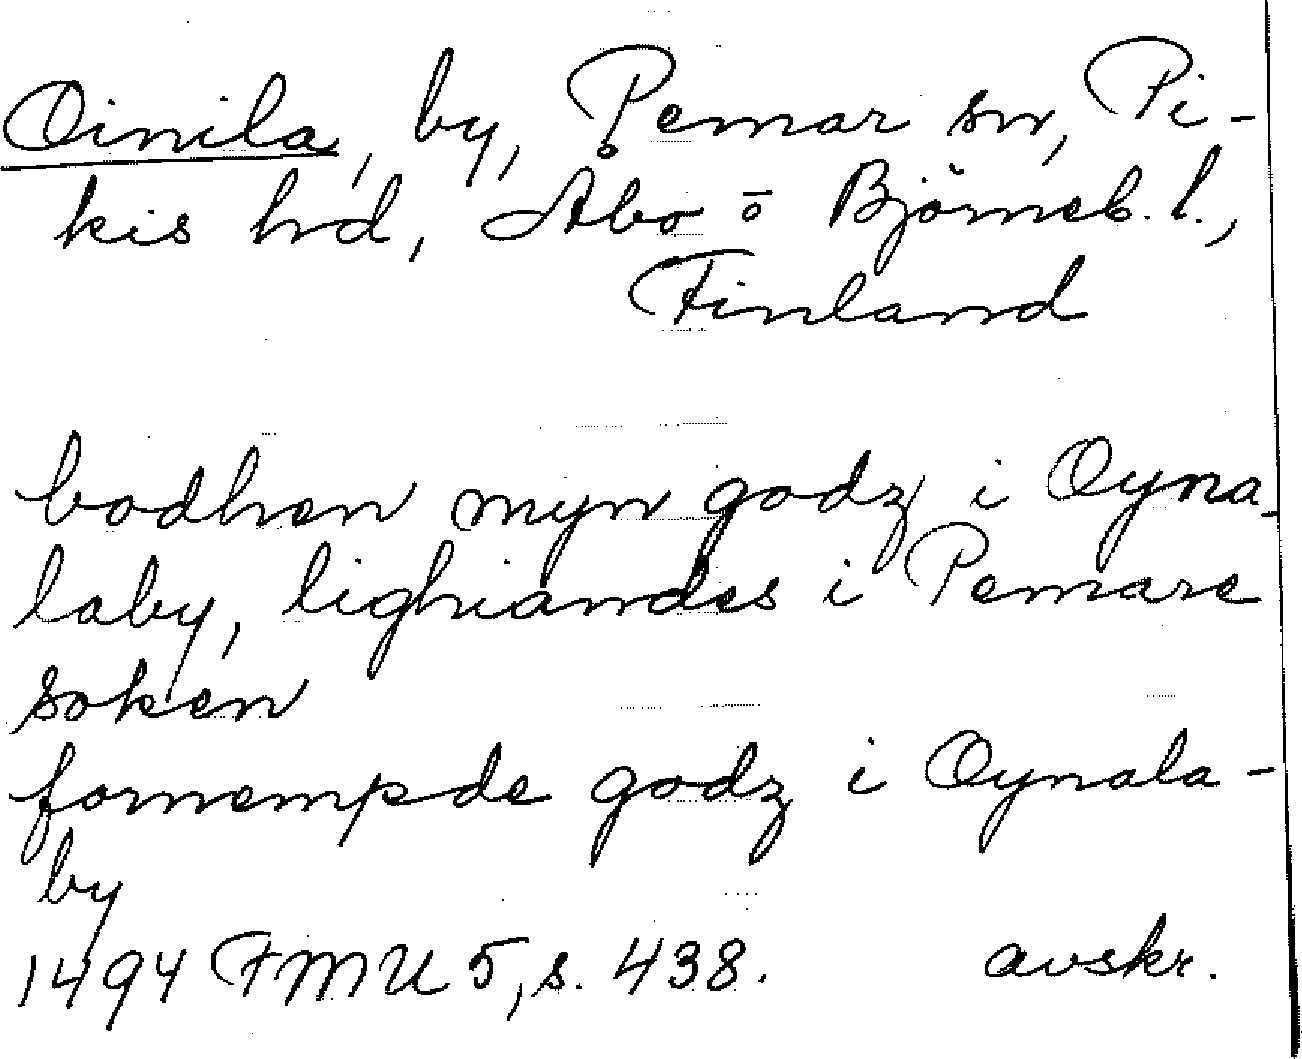 Oinila, by, Pemar sn, Pi-
kis hd, Åbo o Björneb. l.,
Finland
bodhen myn godz i Oyna-
laby, lighiandes i Pemare
soken
fornempde godz i Oynala-
by
1494 FMU 5, s. 438. avskr.